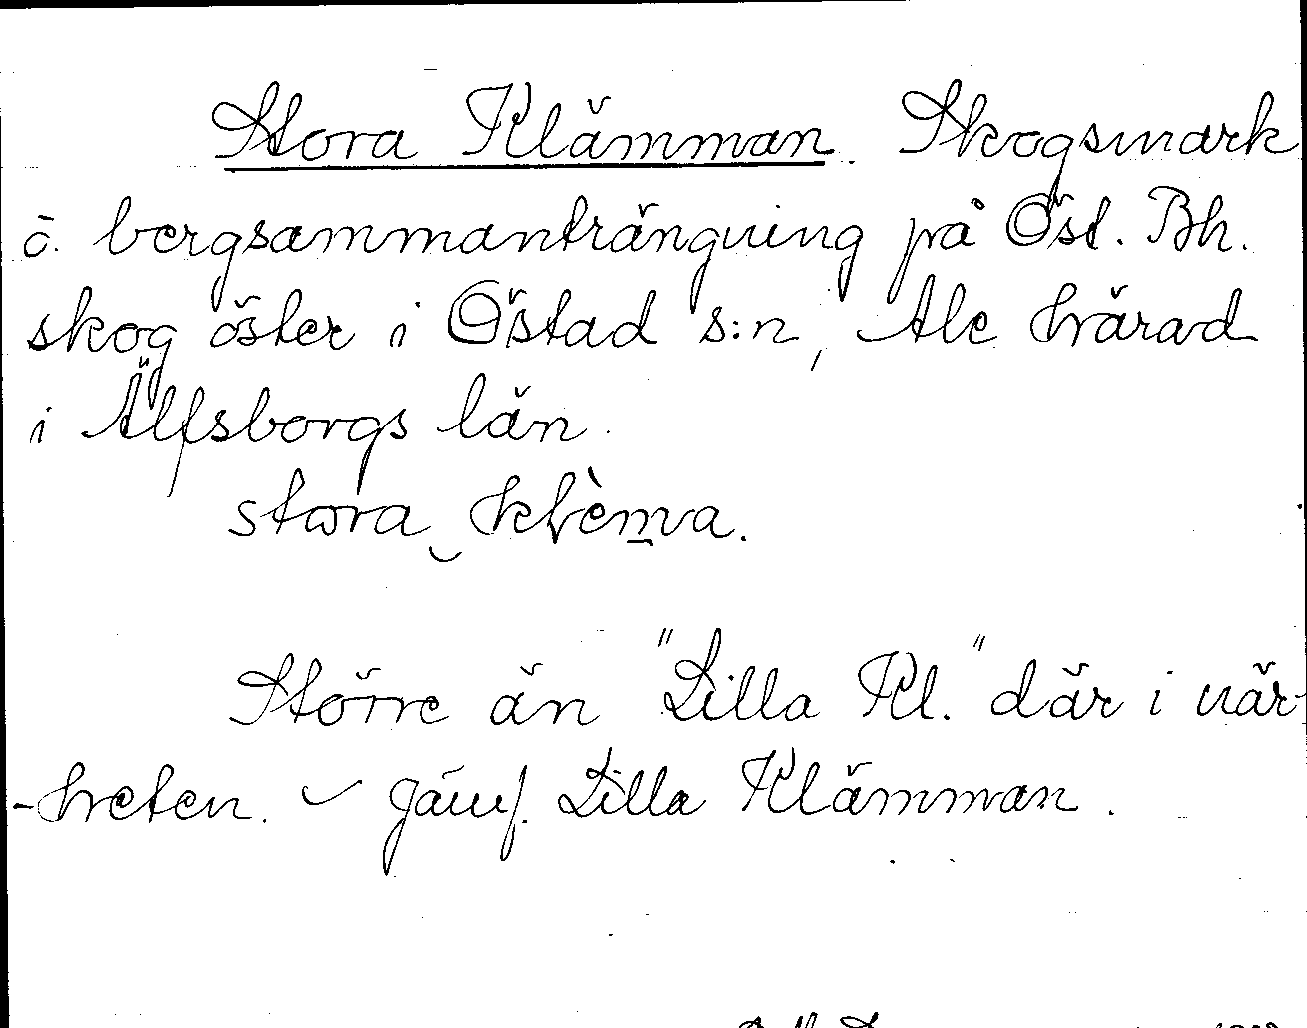 Stora Klämman. Skogsmark
o. bergsammanträngning på Öst. Bh.
skog öster i Östad s:n, Ale härad
i Älfsborgs län.
stora klèma.
Större än "Lilla Kl." där i när-
-heten. Jämf. Lilla Klämman.